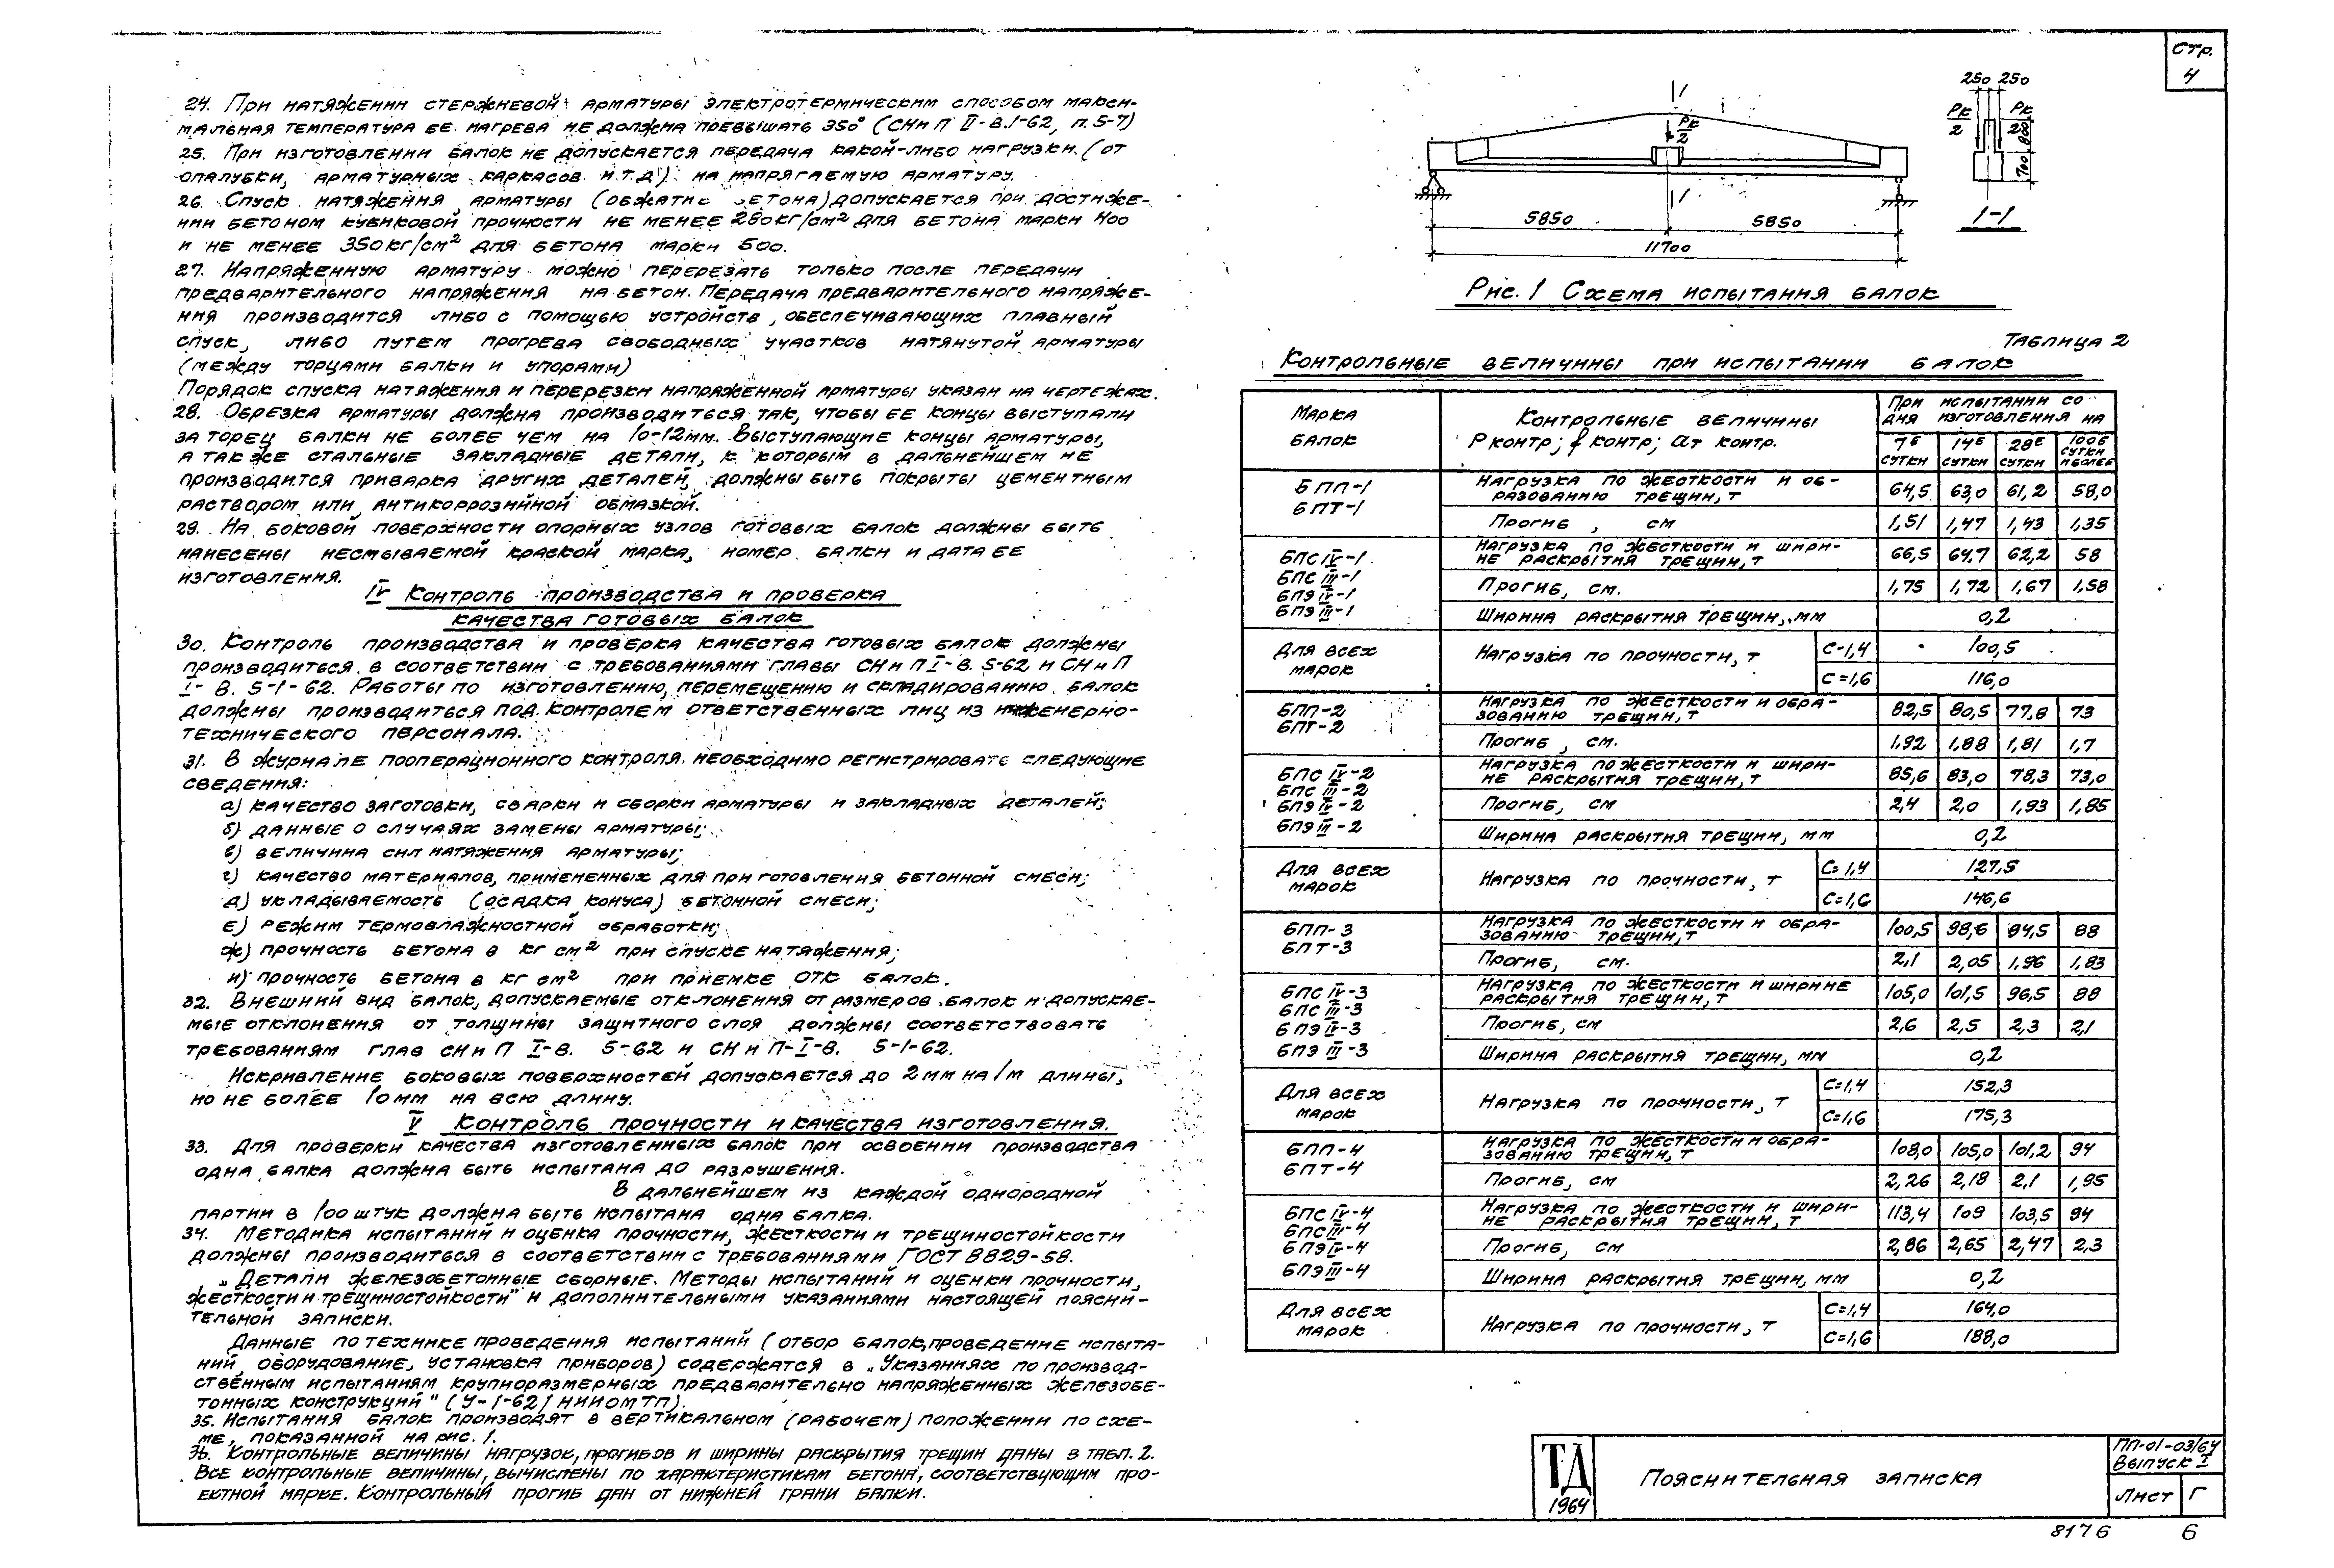 24. При натяжении стержневой арматуры электротермическим способом макси-
мальная температура ее нагрева не должна превышать 350° (СНиП II-В.1-62, п.5-7)
25. При изготовлении балок не допускается передача какой-либо нагрузки (от
опалубки, арматурных каркасов и.т.д.) на напрягаемую арматуру.
26. Спуск натяжения арматуры (обжатие бетона) допускается при достиже-
нии бетоном кубиковой прочности не менее 280кг/см² для бетона марки 400
и не менее 350кг/см² для бетона марки 500.
27. Напряженную арматуру можно перерезать только после передачи
предварительного напряжения на бетон. Передача предварительного напряже-
ния производится либо с помощью устройств, обеспечивающих плавный
спуск, либо путем прогрева свободных участков натянутой арматуры
(между торцами балки и упорами)
Порядок спуска натяжения и перерезки напряженной арматуры указан на чертежах.
28. Обрезка арматуры должна производиться так, чтобы ее концы выступали
за торец балки не более чем на 10-12мм. Выступающие концы арматуры,
а также стальные закладные детали, к которым в дальнейшем не
производится приварка других деталей, должны быть покрыты цементным
раствором или антикоррозийной обмазкой.
29. На боковой поверхности опорных узлов готовых балок должны быть
нанесены несмываемой краской марка, номер балки и дата ее
изготовления.
IV Контроль производства и проверка
качества готовых балок
30. Контроль производства и проверка качества готовых балок должны
производиться в соответствии с требованиями главы СНиП I-В. 5-62 и СНиП
I-В. 5-1-62. Работы по изготовлению, перемещению и складированию балок
должны производиться под контролем ответственных лиц из инженерно-
технического персонала.
31. В журнале пооперационного контроля необходимо регистрировать следующие
сведения:
а) качество заготовки, сварки и сборки арматуры и закладных деталей;
б) данные о случаях замены арматуры;
в) величина сил натяжения арматуры;
г) качество материалов, примененных для приготовления бетонной смеси;
д) укладываемость (осадка конуса) бетонной смеси;
е) режим термовлажностной обработки;
ж) прочность бетона в кг см² при спуске натяжения;
и) прочность бетона в кг см² при приемке ОТК балок.
32. Внешний вид балок, допускаемые отклонения от размеров балок и допускае-
мые отклонения от толщины защитного слоя должны соответствовать
требованиям глав СНиП I-В. 5-62 и СНиП-I-В. 5-1-62.
Искривление боковых поверхностей допускается до 2мм на 1м длины,
но не более 10мм на всю длину.
V Контроль прочности и качества изготовления.
33. Для проверки качества изготовленных балок при освоении производства
одна балка должна быть испытана до разрушения.
В дальнейшем из каждой однородной
партии в 100 штук должна быть испытана одна балка.
34. Методика испытаний и оценка прочности, жесткости и трещиностойкости
должны производиться в соответствии с требованиями ГОСТ 8829-58.
„Детали железобетонные сборные. Методы испытаний и оценки прочности,
жесткости и трещиностойкости" и дополнительными указаниями настоящей поясни-
тельной записки.
Данные по технике проведения испытаний (отбор балок, проведение испыта-
ний, оборудование, установка приборов) содержатся в „Указаниях по производ-
ственным испытаниям крупноразмерных предварительно напряженных железобе-
тонных конструкций" (У-1-62/НИИОМТП).
35. Испытания балок производят в вертикальном (рабочем) положении по схе-
ме, показанной на рис. 1.
36. Контрольные величины нагрузок, прогибов и ширины раскрытия трещин даны в табл. 2.
Все контрольные величины, вычислены по характеристикам бетона, соответствующим про-
ектной марке. Контрольный прогиб дан от нижней грани балки.
Стр.
4
1
Рк
2
1
5850 5850
11700
250 250
Рк
2
Рк
2
800
700
1-1
Рис. 1 Схема испытания балок
Таблица 2
Контрольные величины при испытании балок
Марка балок Контрольные величины Р контр; f контр; ат контр. При испытании со дня изготовления на
7е сутки 14е сутки 28е сутки 100е сутки и более
БПП-1 БПТ-1 Нагрузка по жесткости и об-разованию трещин, т 64,5 63,0 61,2 58,0
Прогиб, см 1,51 1,47 1,43 1,35
БПС IV-1 БПС III-1 БПЭ IV-1 БПЭ III-1 Нагрузка по жесткости и шири-не раскрытия трещин, т 66,5 64,7 62,2 58
Прогиб, см. 1,75 1,72 1,67 1,58
Ширина раскрытия трещин, мм 0,2
Для всех марок Нагрузка по прочности, т С-1,4 100,5
С=1,6 116,0
БПП-2 БПТ-2 Нагрузка по жесткости и обра-зованию трещин, т 82,5 80,5 77,8 73
Прогиб, см. 1,92 1,88 1,81 1,7
БПС IV-2 БПС III-2 БПЭ IV-2 БПЭ III-2 Нагрузка по жесткости и шири-не раскрытия трещин, т 85,6 83,0 78,3 73,0
Прогиб, см 2,4 2,0 1,93 1,85
Ширина раскрытия трещин, мм 0,2
Для всех марок Нагрузка по прочности, т С=1,4 127,5
С=1,6 146,6
БПП-3 БПТ-3 Нагрузка по жесткости и обра-зованию трещин, т 100,5 98,6 94,5 88
Прогиб, см. 2,1 2,05 1,96 1,83
БПС IV-3 БПС III-3 БПЭ IV-3 БПЭ III-3 Нагрузка по жесткости и ширине раскрытия трещин, т 105,0 101,5 96,5 88
Прогиб, см 2,6 2,5 2,3 2,1
Ширина раскрытия трещин, мм 0,2
Для всех марок Нагрузка по прочности, т С=1,4 152,3
С=1,6 175,3
БПП-4 БПТ-4 Нагрузка по жесткости и обра-зованию трещин, т 108,0 105,0 101,2 94
Прогиб, см 2,26 2,18 2,1 1,95
БПС IV-4 БПС III-4 БПЭ IV-4 БПЭ III-4 Нагрузка по жесткости и шири-не раскрытия трещин, т 113,4 109 103,5 94
Прогиб, см 2,86 2,65 2,47 2,3
Ширина раскрытия трещин, мм 0,2
Для всех марок Нагрузка по прочности, т С=1,4 164,0
С=1,6 188,0
ТД
1964
Пояснительная записка
ПП-01-03/64
Выпуск I
Лист Г
8176 6